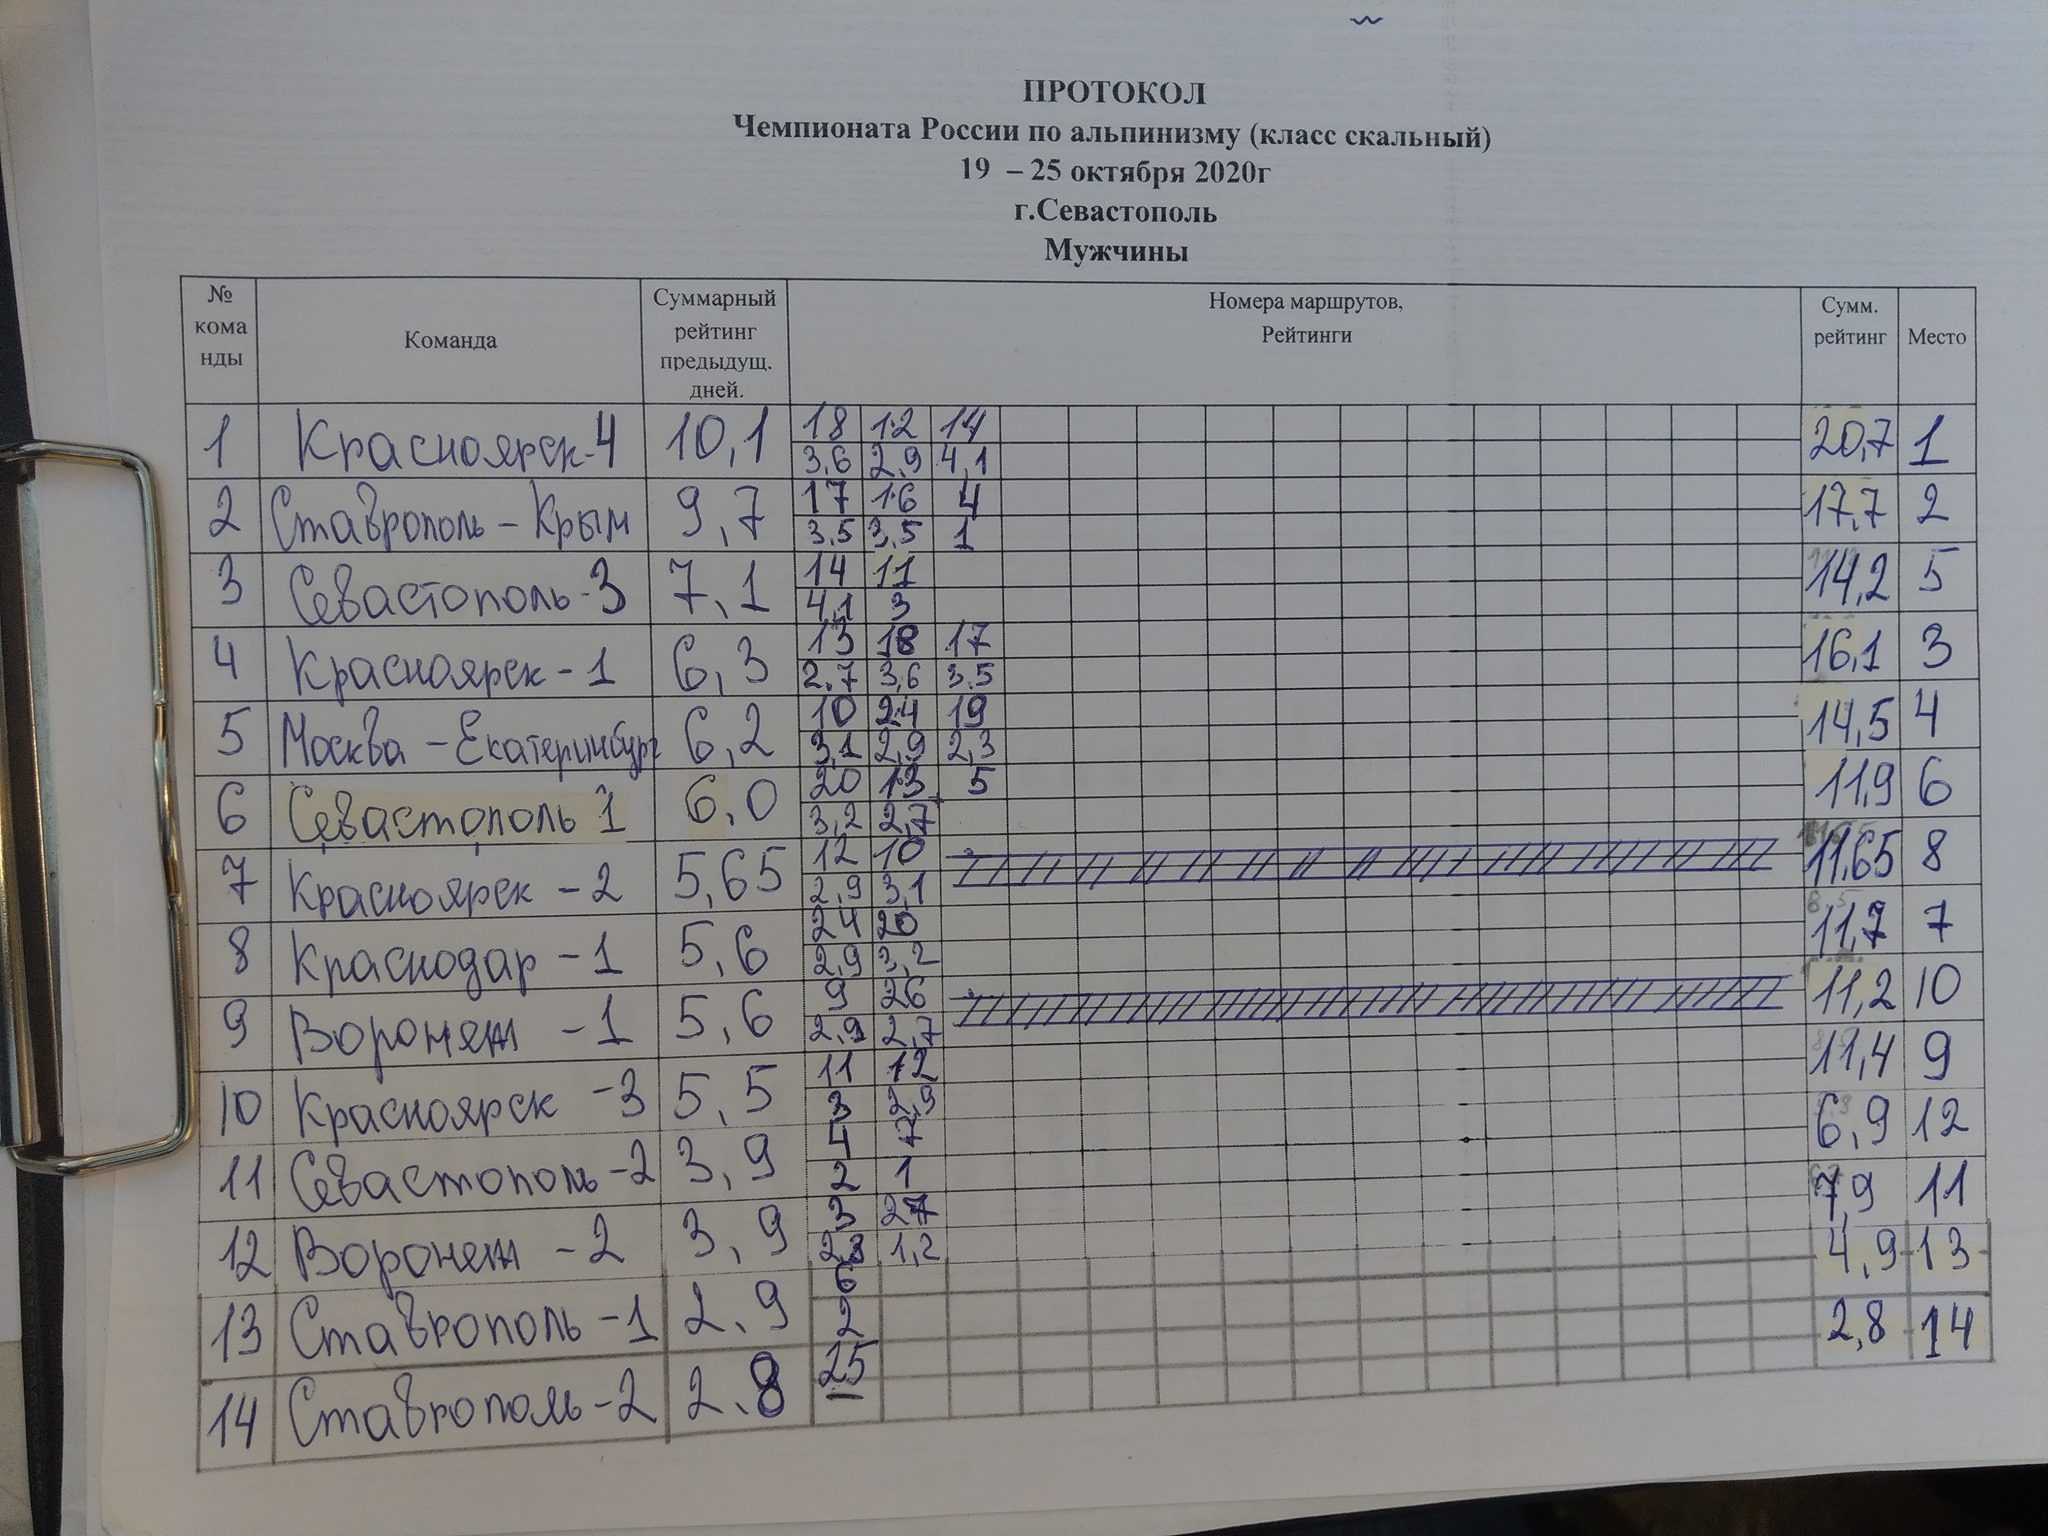 ПРОТОКОЛ
Чемпионата России по альпинизму (класс скальный)
19 – 25 октября 2020г
г.Севастополь
Мужчины
№ кома нды Команда Суммарный рейтинг предыдущ. дней. Номера маршрутов, Рейтинги Сумм. рейтинг Место
1 Красноярск-4 10,1 18 12 14 20,7 1
3,6 2,9 4,1
2 Ставрополь - Крым 9,7 17 16 4 17,7 2
3,5 3,5 1
3 Севастополь-3 7,1 14 11 14,2 5
4,1 3
4 Красноярск-1 6,3 13 18 17 16,1 3
2,7 3,6 3.5
5 Москва - Екатеринбург 6,2 10 24 19 14,5 4
3,1 2,9 2,3
6 Севастополь 1 6,0 20 13 5 11,9 6
3,2 2,7
7 Красноярск - 2 5,65 12 10 11,65 8
2,9 3,1
8 Краснодар - 1 5,6 24 20 11,7 7
2,9 3,2
9 Воронеж - 1 5,6 9 26 11,2 10
2,9 2,7
10 Красноярск - 3 5,5 11 12 11,4 9
3 2,9
11 Севастополь-2 3,9 4 7 6,9 12
2 1
12 Воронеж - 2 3,9 3 27 7,9 11
2,8 1,2
13 Ставрополь - 1 2,9 6 4,9 13
2
14 Ставрополь-2 2.8 25 2,8 14